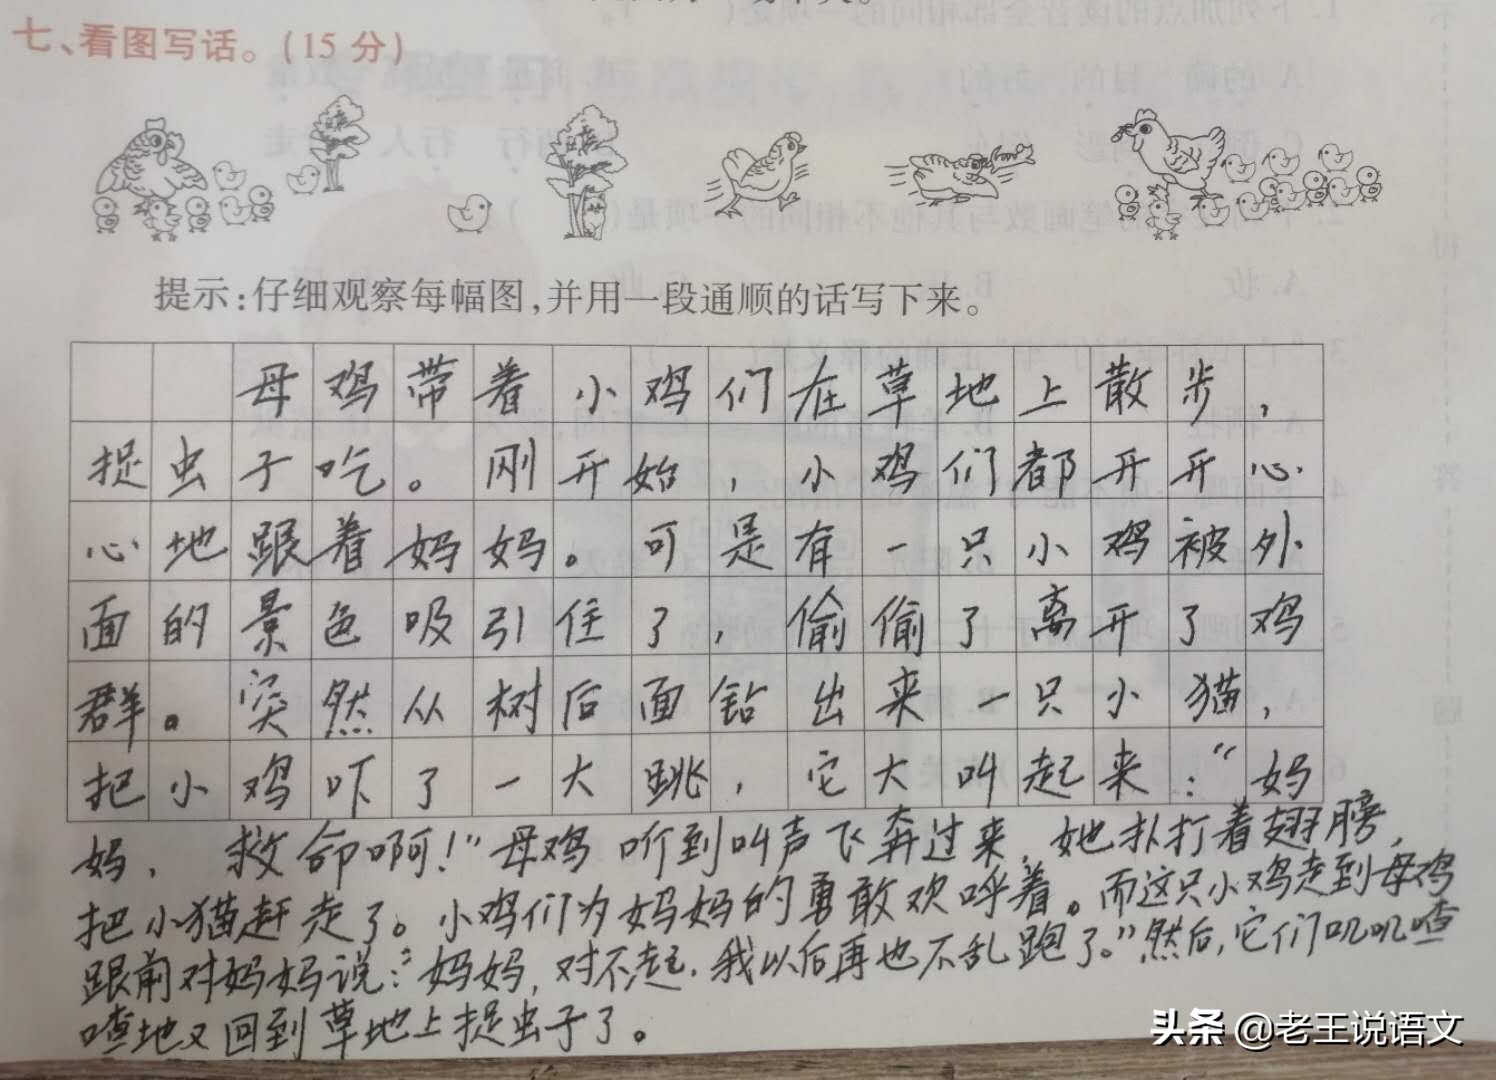 七、看图写话。(15 分)
提示:仔细观察每幅图,并用一段通顺的话写下来。
母鸡带着小鸡们在草地上散步,
捉虫子吃。刚开始,小鸡们都开开心
心地跟着妈妈。可是有一只小鸡被外
面的景色吸引住了,偷偷了离开了鸡
群。突然从树后面钻出来一只小猫,
把小鸡吓了一大跳,它大叫起来:“妈
妈,救命啊!”母鸡听到叫声飞奔过来,她扑打着翅膀,
把小猫赶走了。小鸡们为妈妈的勇敢欢呼着。而这只小鸡走到母鸡
跟前对妈妈说:“妈妈,对不起,我以后再也不乱跑了。”然后,它们叽叽喳
喳地又回到草地上捉虫子了。
头条 @老王说语文